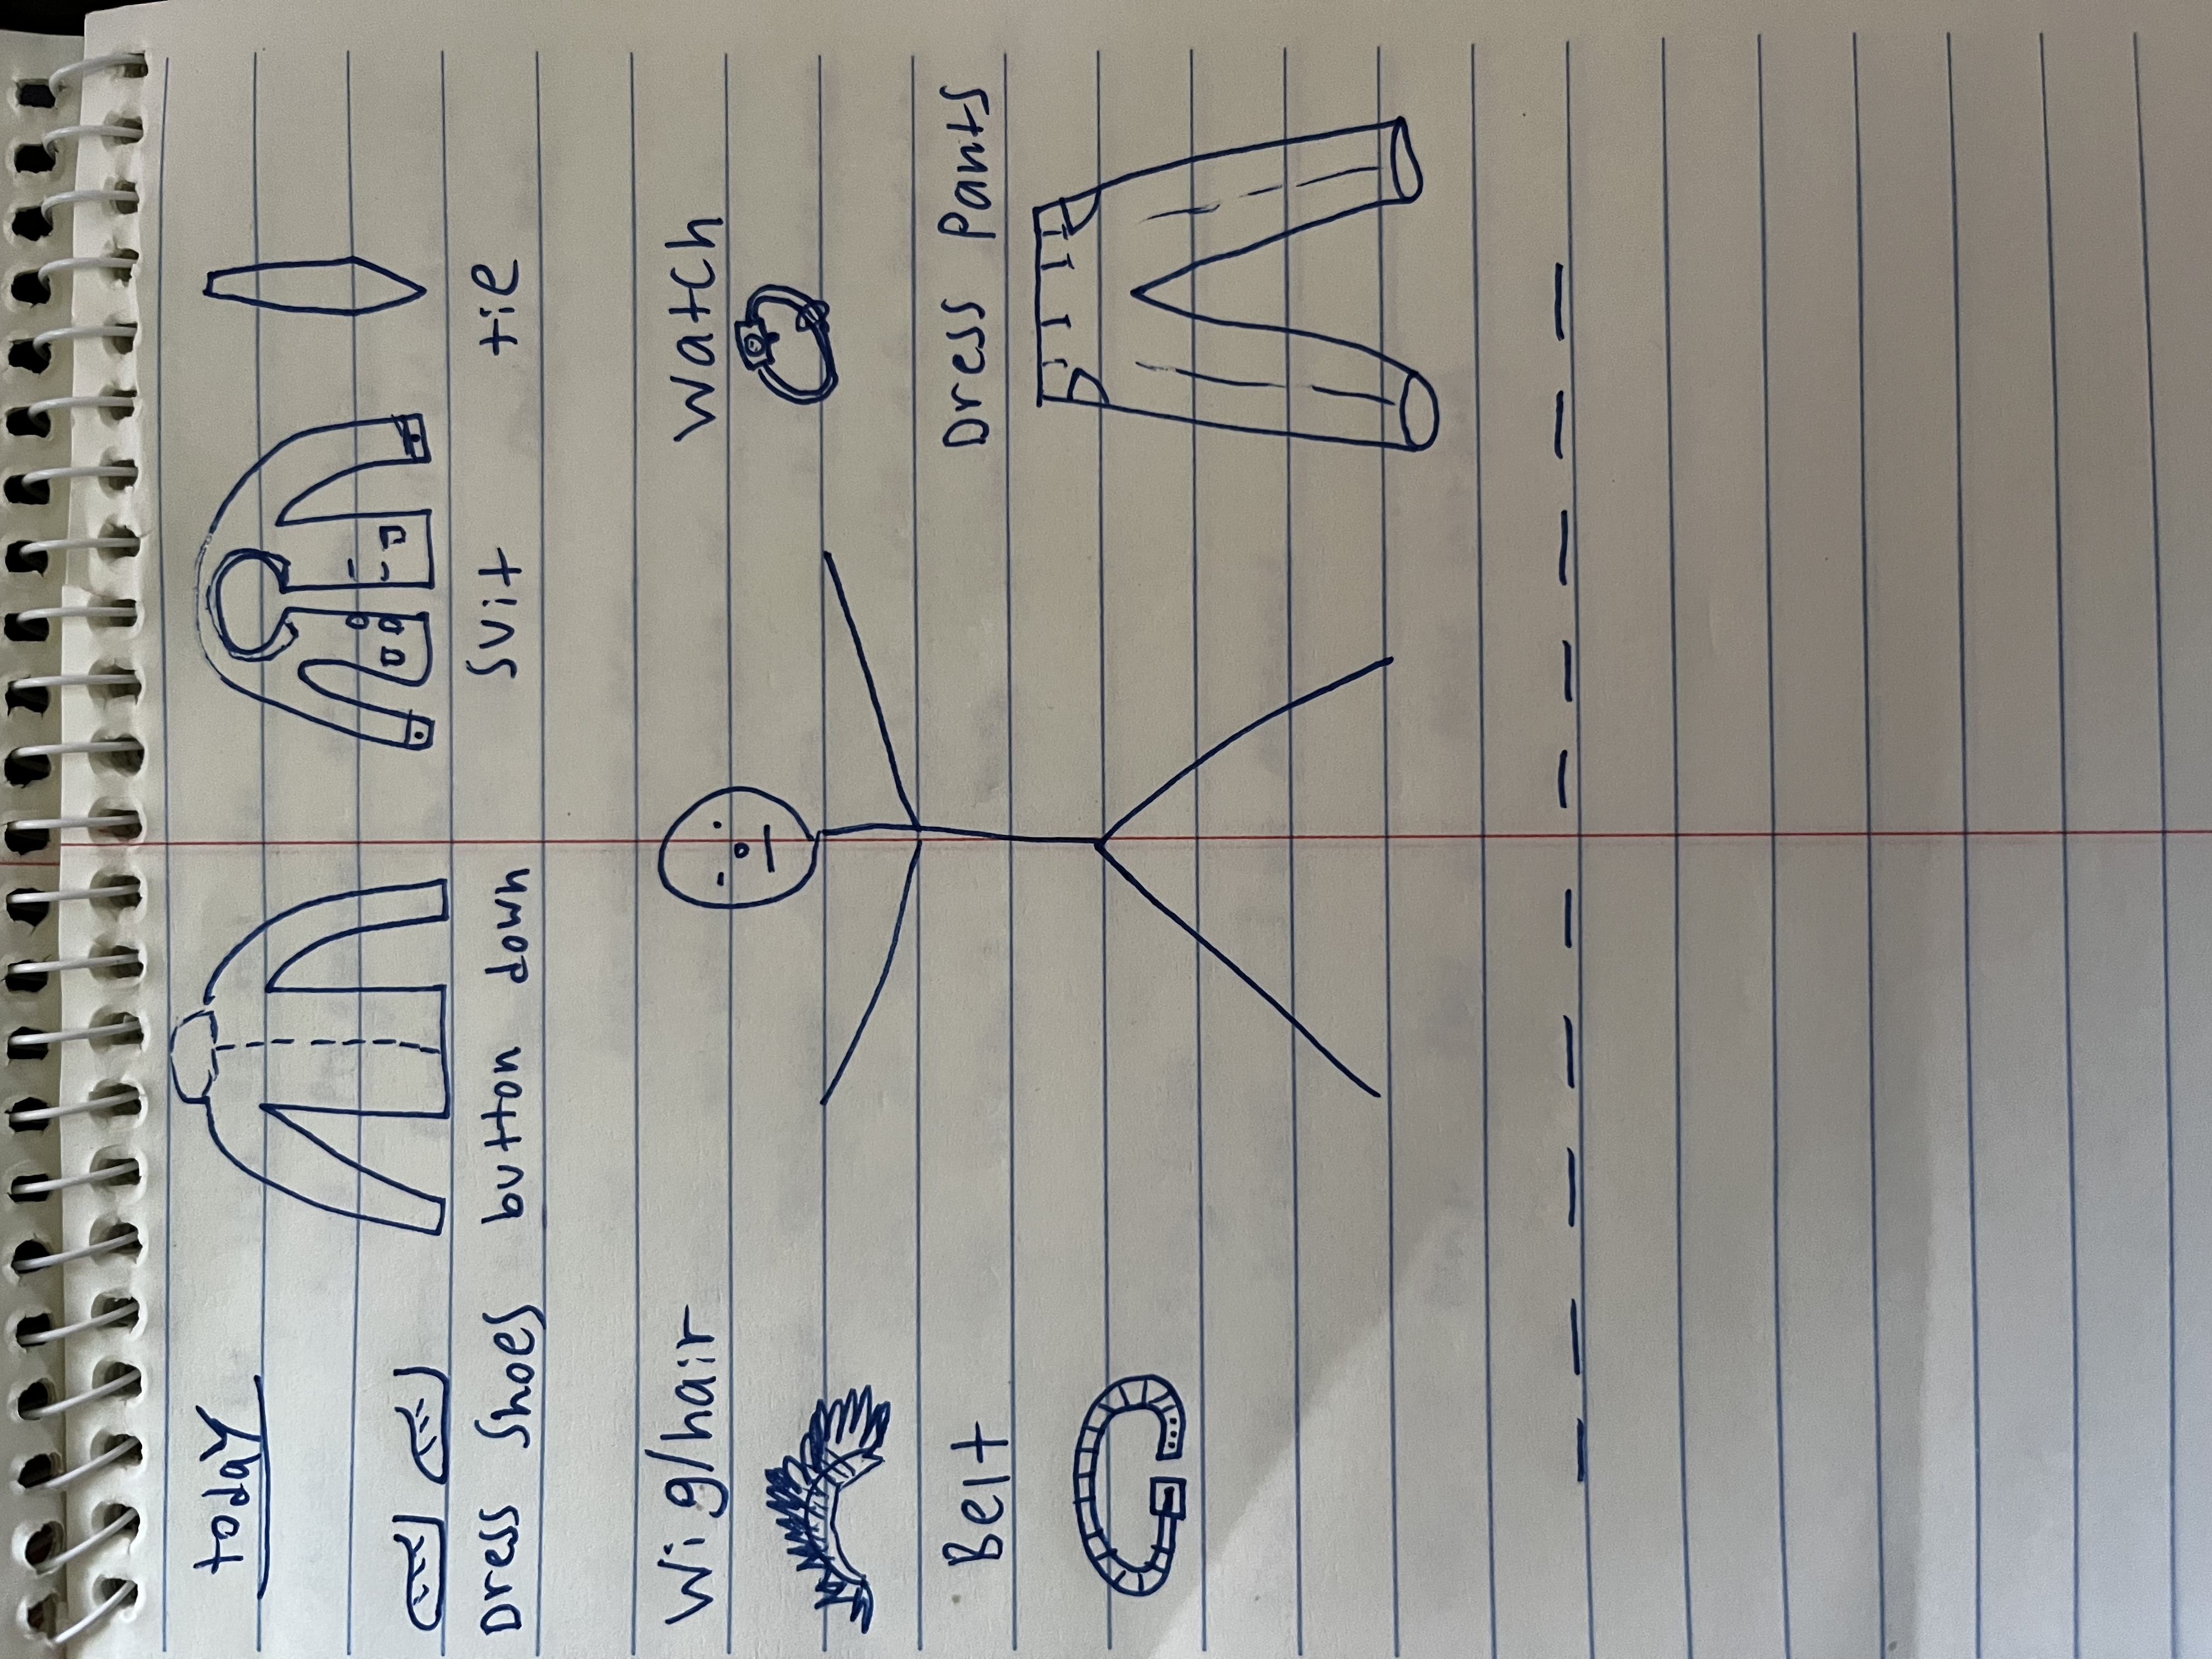 today
Dress Shoes button down suit tie
Wig/hair watch
Belt Dress Pants